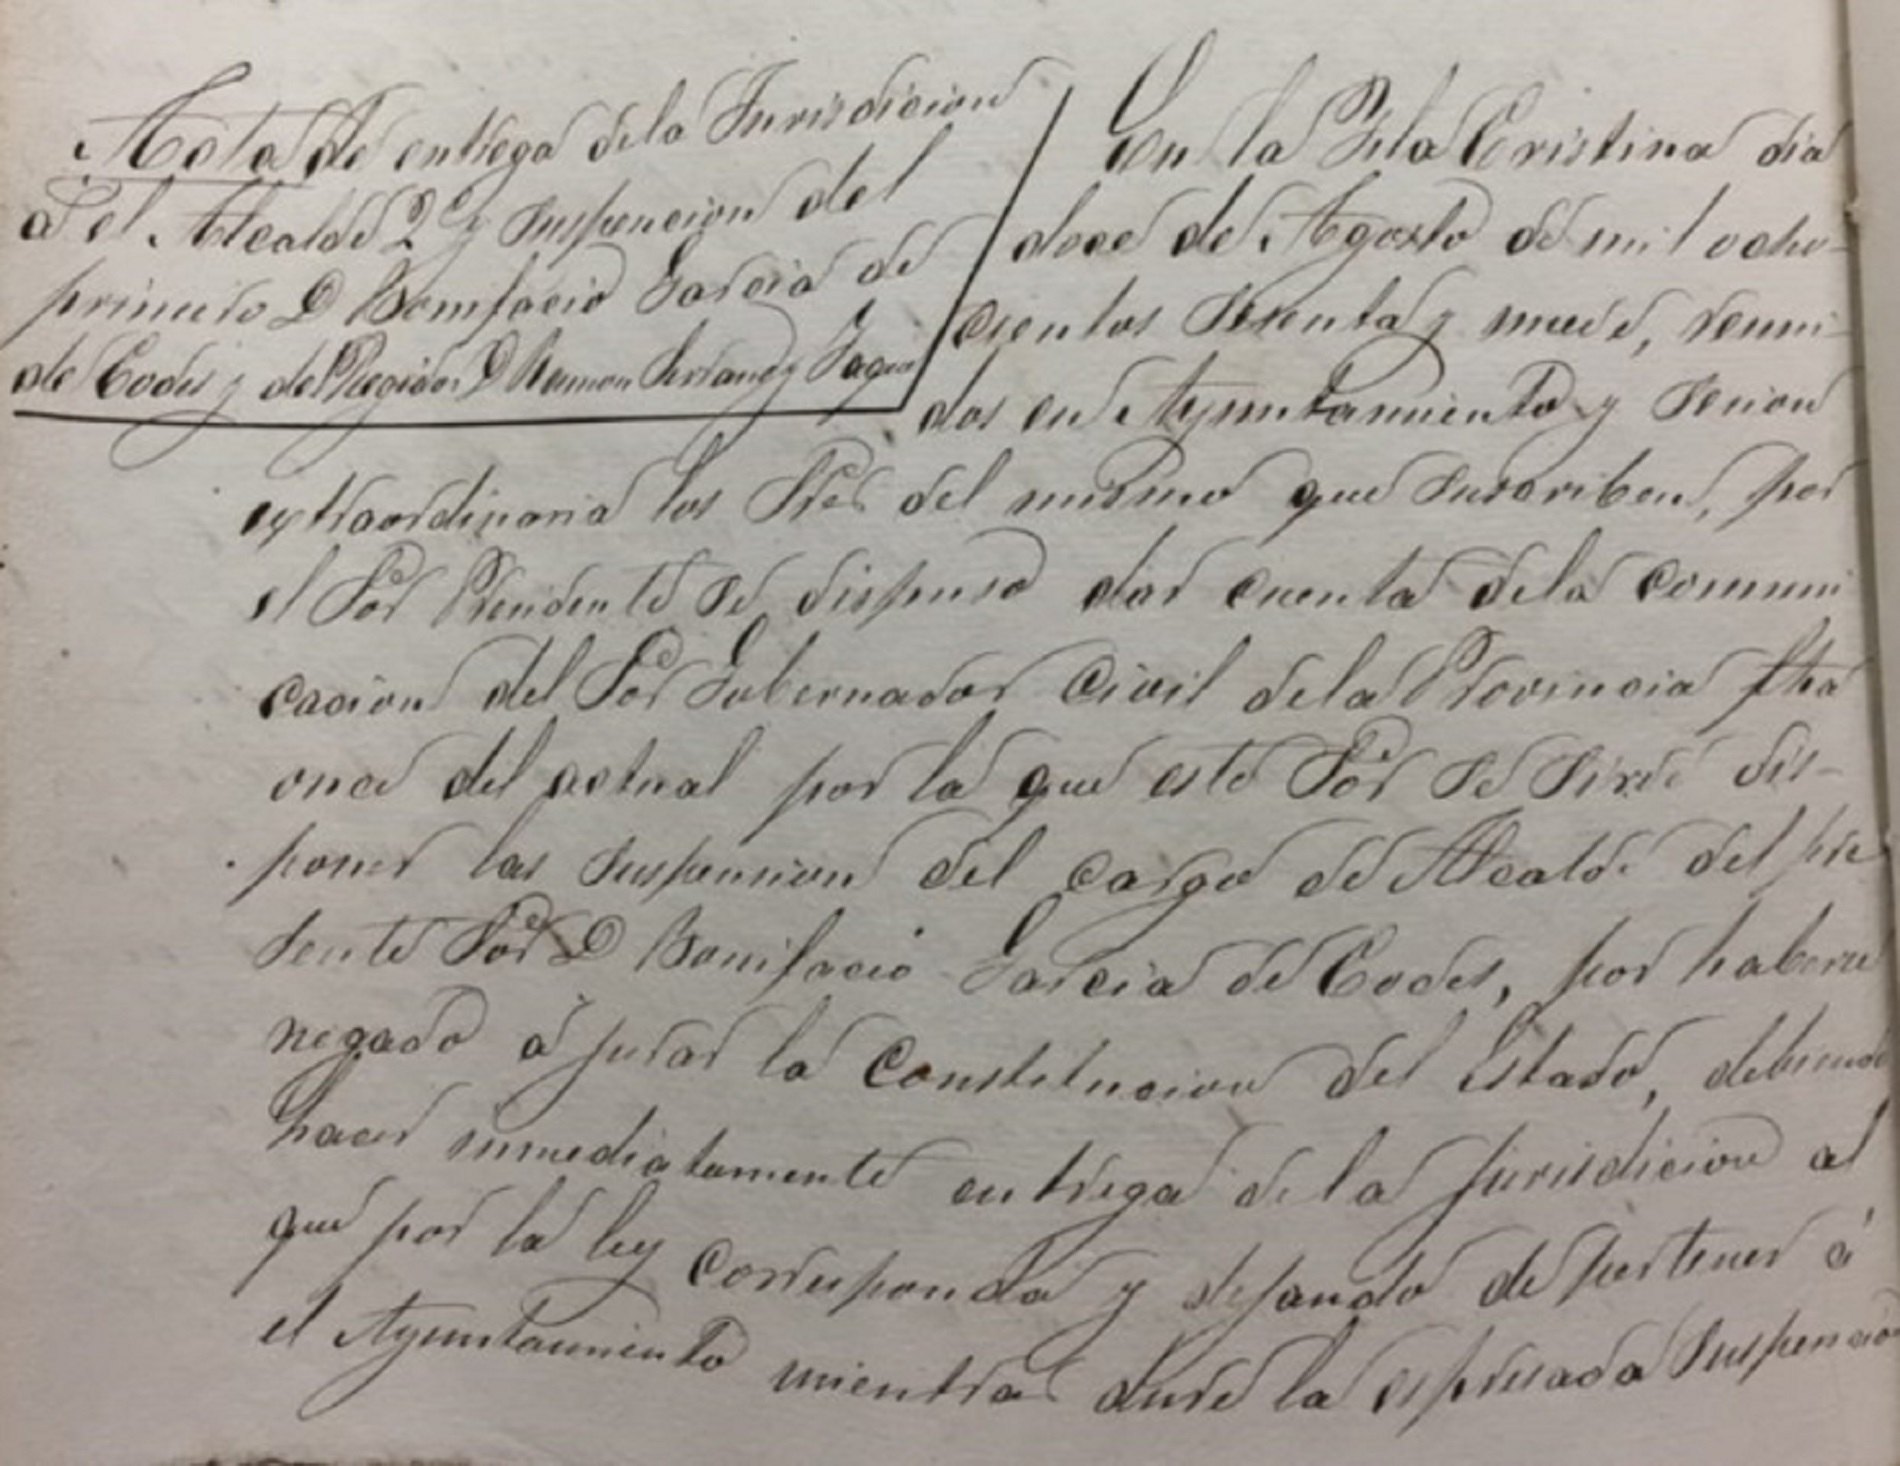 Acta de entrega de la Jurisdicion
a el Alcalde 2º y suspencion del
primero D Bonifacio Garcia de
de Codes y del Regidor D Ramon Serrano y
En la Isla Cristina dia
doce de Agosto de mil ocho-
cientos sesenta y nueve, reuni-
dos en Ayuntamiento y sesion
extraordinaria los Sres del mismo que suscriben, por
el Sor Presidente se dispuso dar cuenta de la comuni
cacion del Sor Gobernador Civil de la Provincia fha
once del actual por la que este Sor se sirve dis-
poner las suspension del cargo de Alcalde del pre
sente Sor D Bonifacio Garcia de Codes, por haberse
negado á jurar la Constitucion del Estado, debiendo
hacer inmediatamente entrega de la jurisdicion al
que por la ley corresponda y dejando de pertener á
el Ayuntamiento mientras dure la espresada suspencion